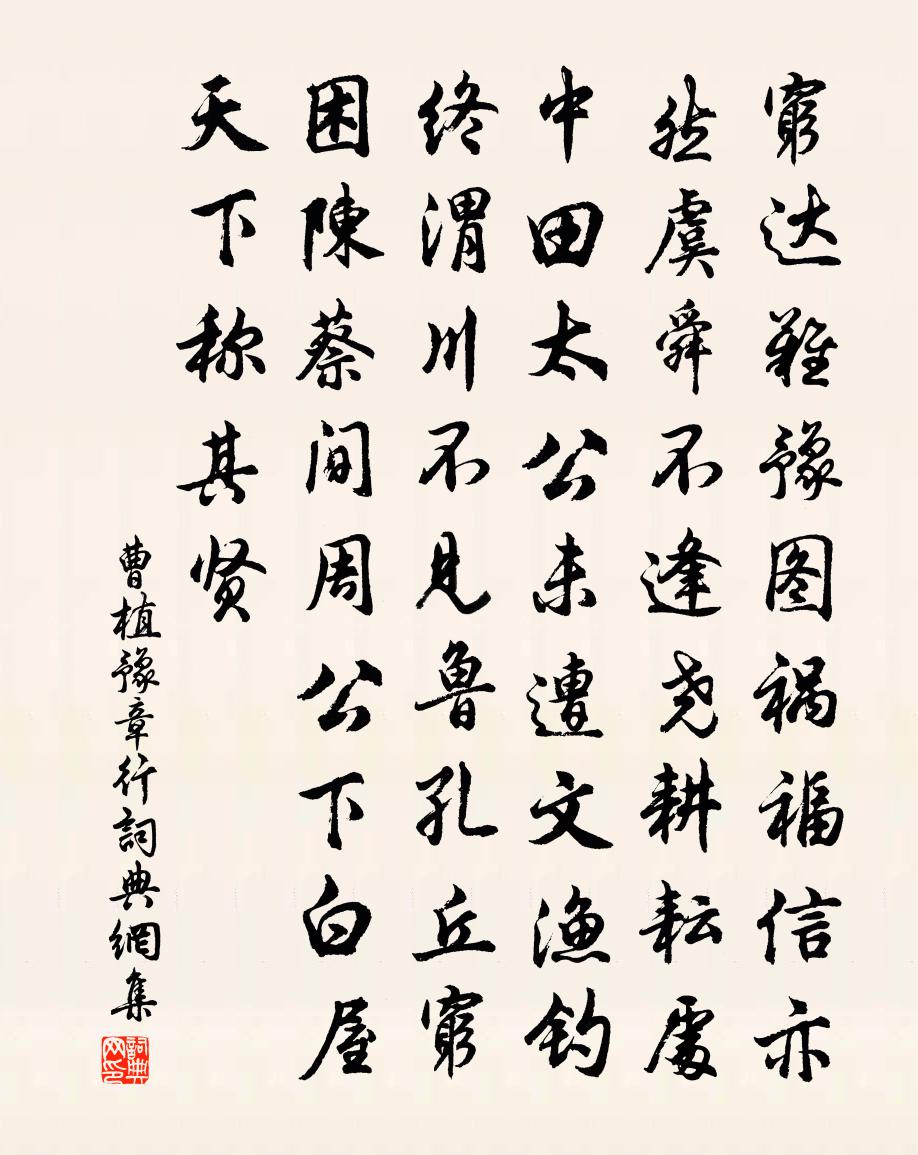 窮达難豫图祸福信亦
然虞舜不逢尧耕耘處
中田太公未遭文渔钓
终渭川不见鲁孔丘窮
困陳蔡间周公下白屋
天下称其贤
曹植豫章行詞典網集
詞典网印